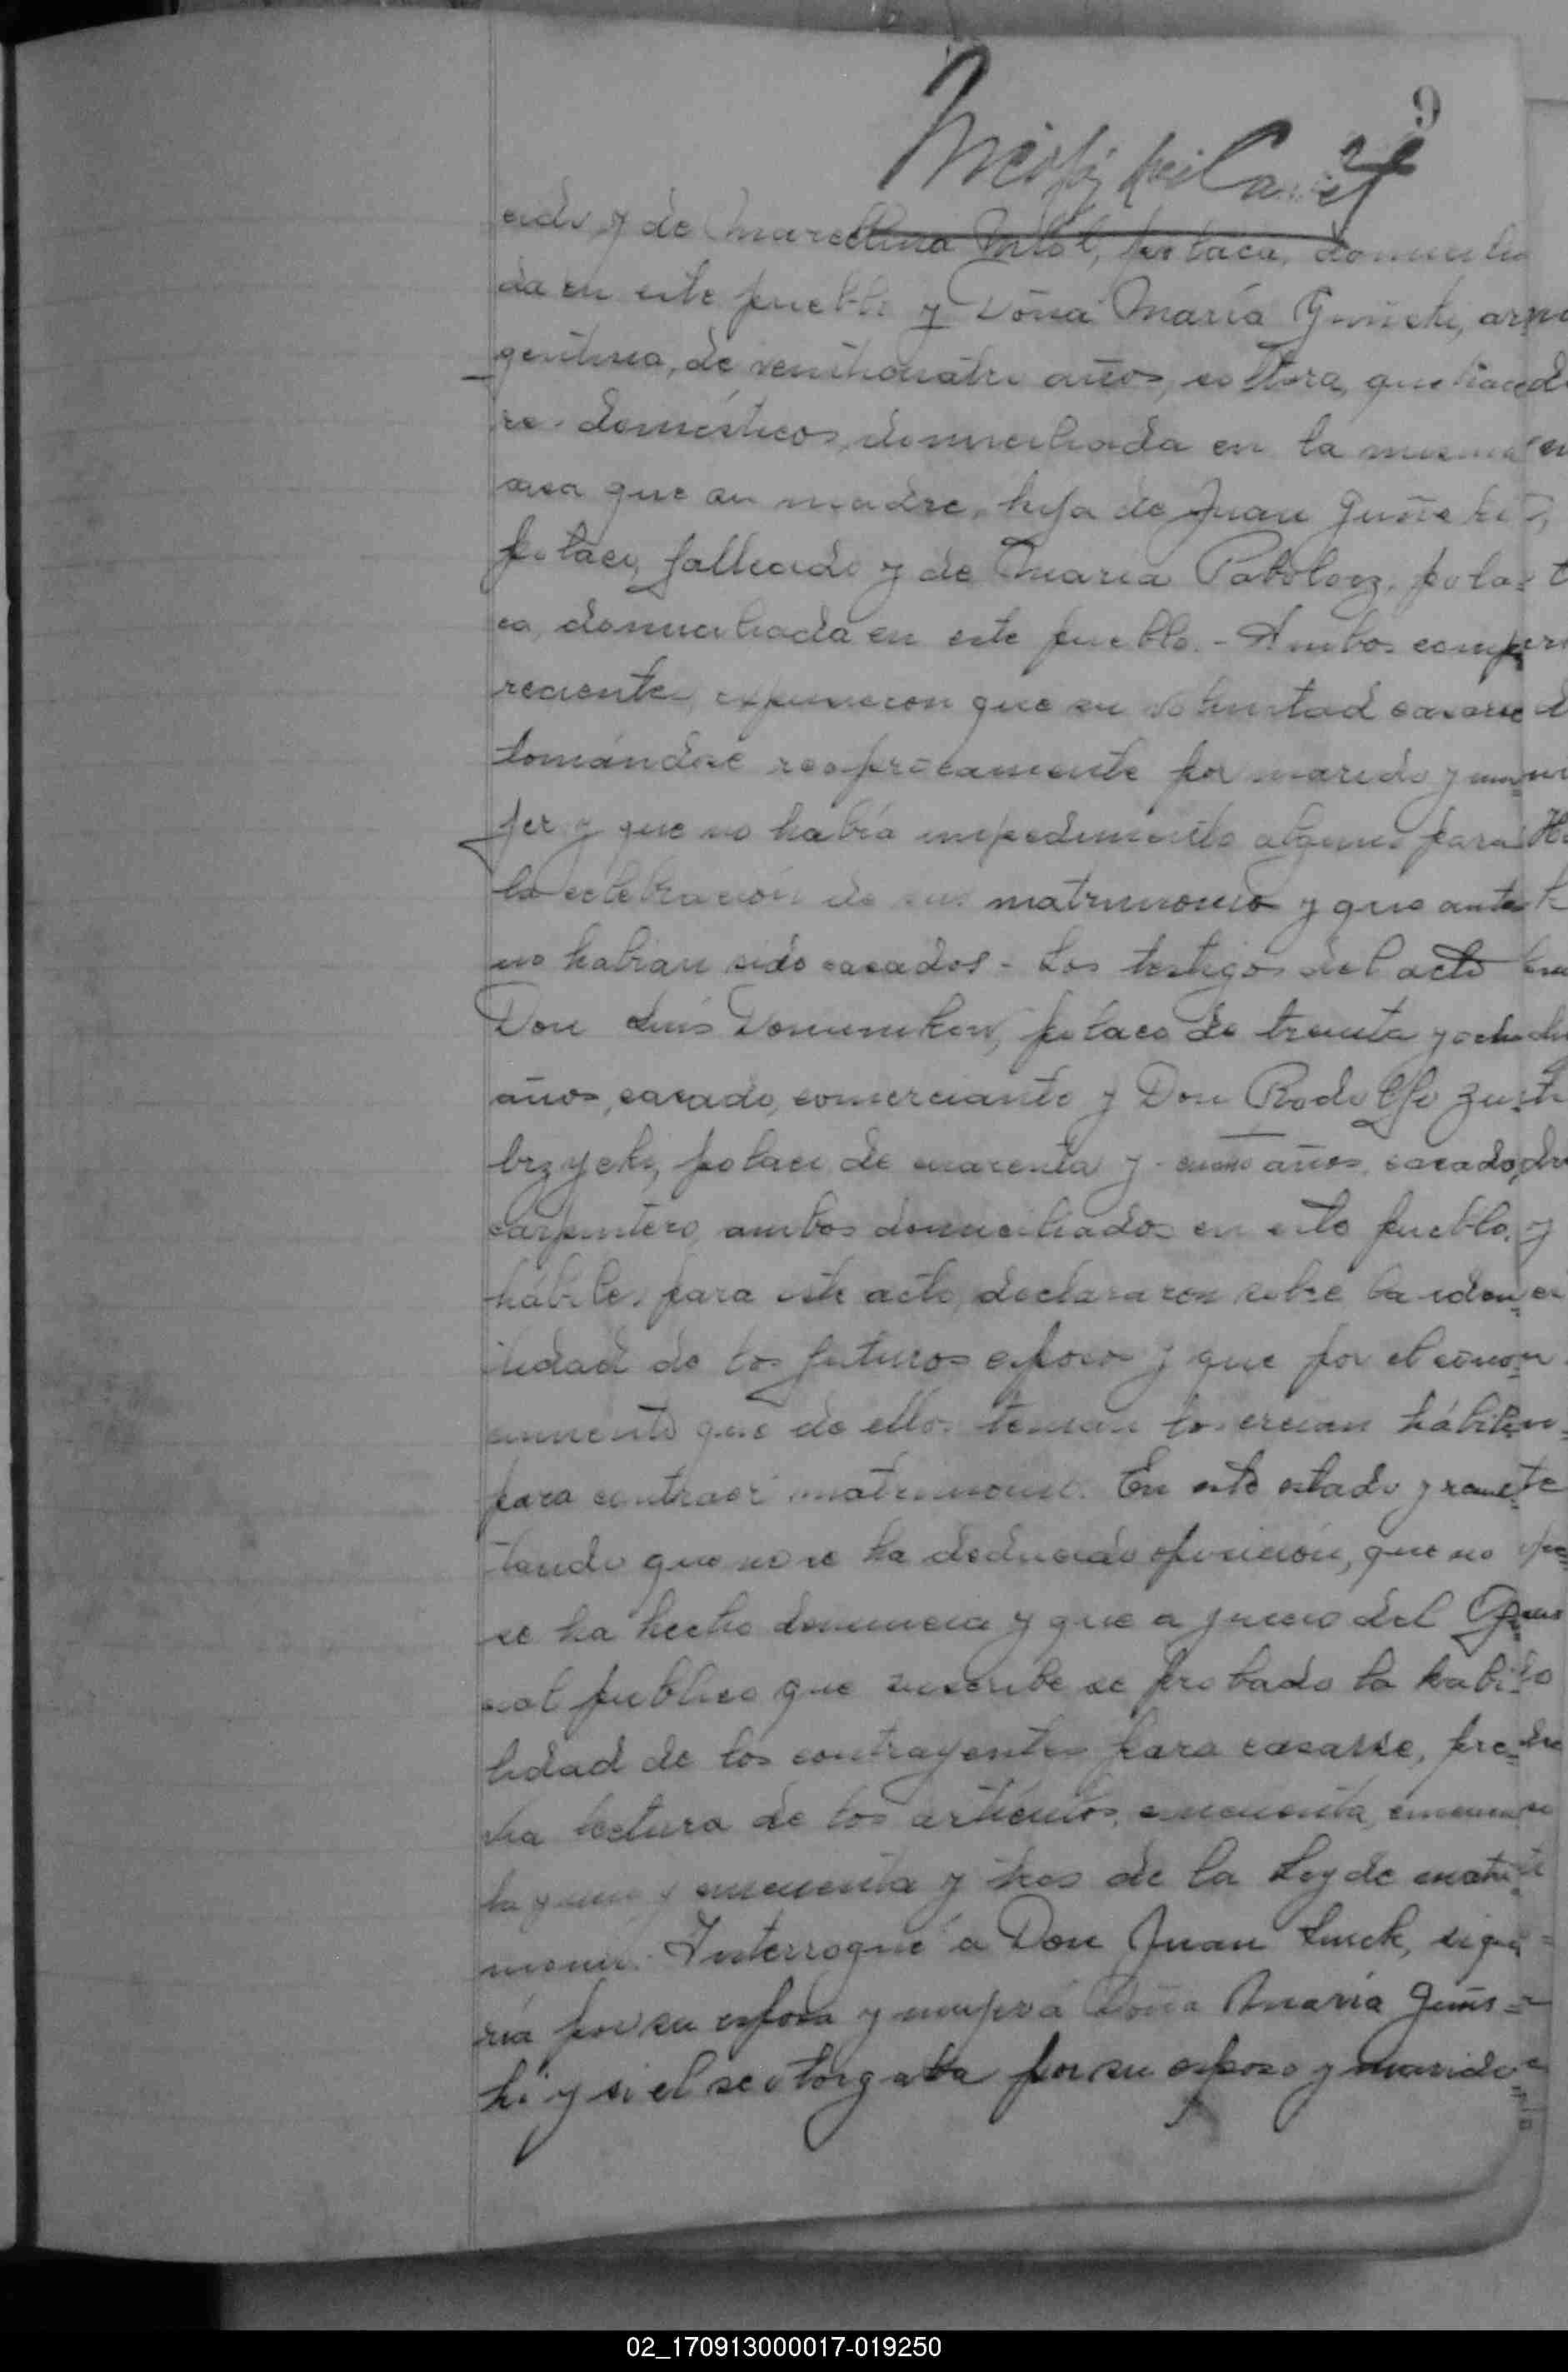 9
cido, y de Marcelina Intol, polaca, domicilia
da en este pueblo y Doña María Guñski, ar
gentina, de venticuatro años, soltera, que hace
res domésticos, domiciliada en la misma
casa que su madre, hija de Juan Guñski,
polaco, fallecido y de María Pabolorz, pola-
ca, domiciliada en este pueblo.- Ambos compa
recientes expusieron que su voluntad casarse
tomándose recíprocamente por marido y mu
jer y que no había impedimento alguno para
la celebración de su matrimonio y que antes
no habían sido casados - Los testigos del acto
Don Luis Dominikow, polaco de treinta y ocho
años, casado, comerciante y Don Rodolfo Zu
brzycki, polaco de cuarenta y años, casado,
carpintero, ambos domiciliados en este pueblo, y
hábiles para este acto, declararon sobre la iden
tidad de los futuros esposos y que por el cono
cimiento que de ellos tenían los creían hábiles
para contraer matrimonio. En este estado y resul
tando que no se ha deducido oposición, que no
se ha hecho denuncia y que a juicio del Ofi
cial público que suscribe se probado la habi
lidad de los contrayentes para casarse, pre
via lectura de los artículos, cincuenta, cincuen
ta y uno y cincuenta y tres de la Ley de matri
monio. Interrogué a Don Juan Luick, si que
ría por su esposa y mujer á Doña María Guñs-
ki y si el se otorgaba por su esposo y marido
02_170913000017-019250